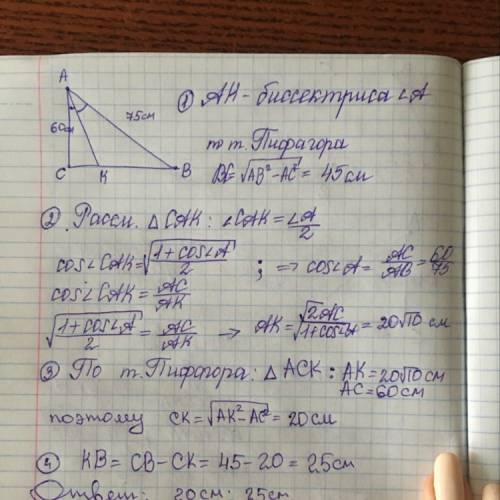 A
75см
60см
C K B
① АК - биссектриса ∠A
по т. Пифагора
BC = √(AB² - AC²) = 45 см
② Рассм. △CAK: ∠CAK = ∠A/2
cos∠CAK = √((1+cos∠A)/2) ; ⇒ cos∠A = AC/AB = 60/75
cos∠CAK = AC/AK
√((1+cos∠A)/2) = AC/AK → AK = √2AC/√(1+cos∠A) = 20√10 см
③ По т. Пифагора: △ACK: AK = 20√10 см
AC = 60см
поэтому CK = √(AK² - AC²) = 20 см
④ KB = CB - CK = 45 - 20 = 25 см
Ответ: 20 см; 25 см